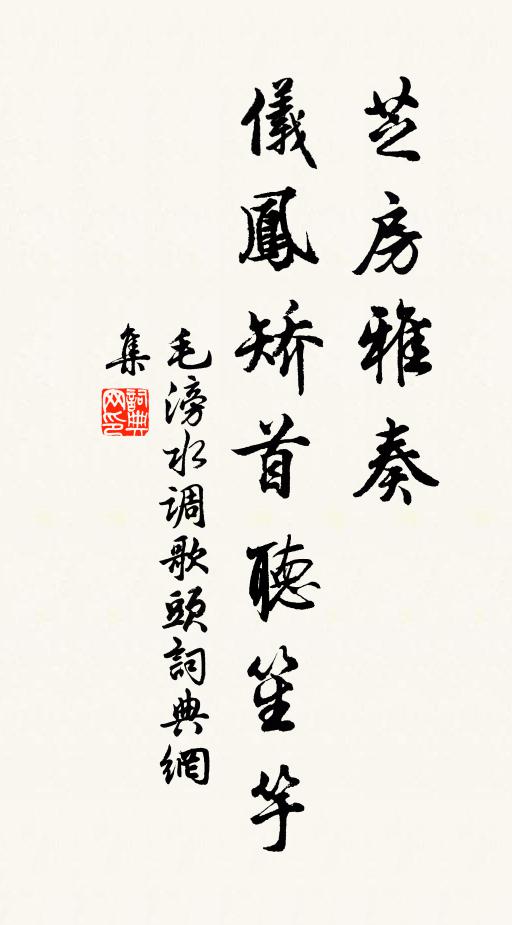 芝房雅奏
儀鳳矫首聽笙竽
毛滂水调歌頭詞典網
集
詞典
网印